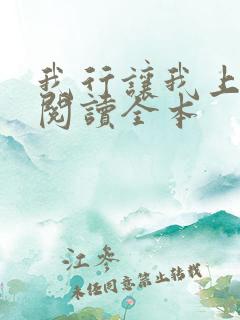 我行讓我上
閱讀全本
江參
未經同意禁止轉載